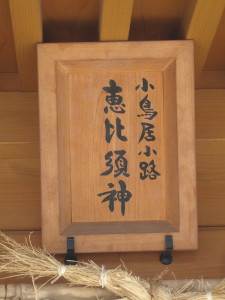 小鳥居小路
恵比須神